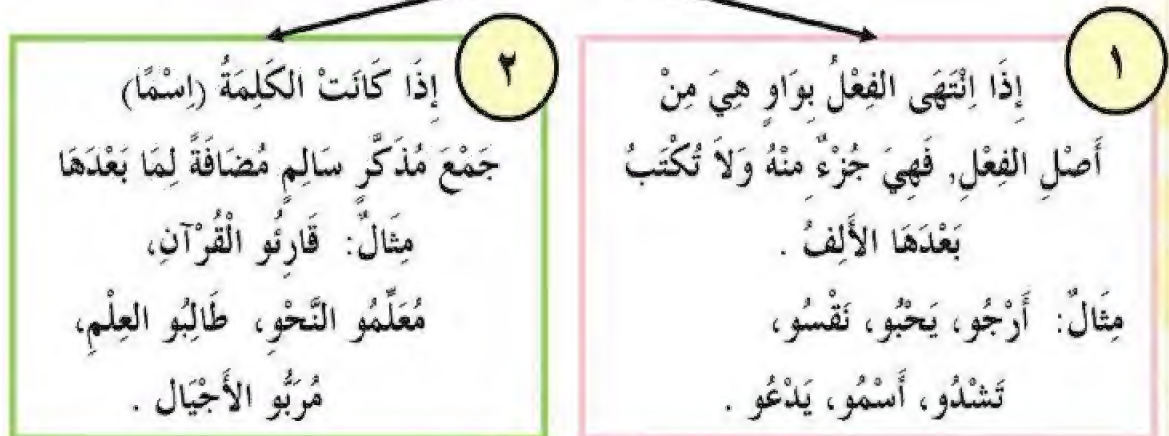 ١
إِذَا اِنْتَهَى الفِعْلُ بِوَاوٍ هِيَ مِنْ
أَصْلِ الفِعْلِ, فَهِيَ جُزْءٌ مِنْهُ وَلاَ تُكْتَبُ
بَعْدَهَا الأَلِفُ .
مِثَالٌ: أَرْجُو، يَحْبُو، نَقْسُو،
تَشْدُو، أَسْمُو، يَدْعُو .
٢
إِذَا كَانَتْ الكَلِمَةُ (اِسْمًا)
جَمْعَ مُذَكَّرٍ سَالِمٍ مُضَافَةً لِمَا بَعْدَهَا
مِثَالٌ: قَارِئُو الْقُرْآنِ،
مُعَلِّمُو النَّحْوِ، طَالِبُو العِلْمِ،
مُرَبُّو الأَجْيَال .